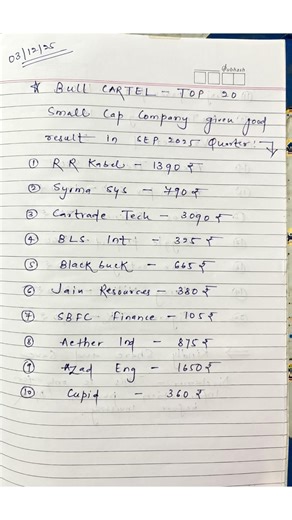 03/12/25
Subhash
* Bull CARTEL - TOP 20
Small Cap Company given good
result In SEP 2025 Quarter:- ↓
① R R Kabel - 1390 ₹
② Syrma Sys - 790 ₹
③ Cartrade Tech - 3090 ₹
④ BLS Int - 325 ₹
⑤ Black buck - 665 ₹
⑥ Jain Resources - 380 ₹
⑦ SBFC Finance - 105 ₹
⑧ Aether Ind - 875 ₹
⑨ Azad Eng - 1650 ₹
⑩ Cupid : - 360 ₹